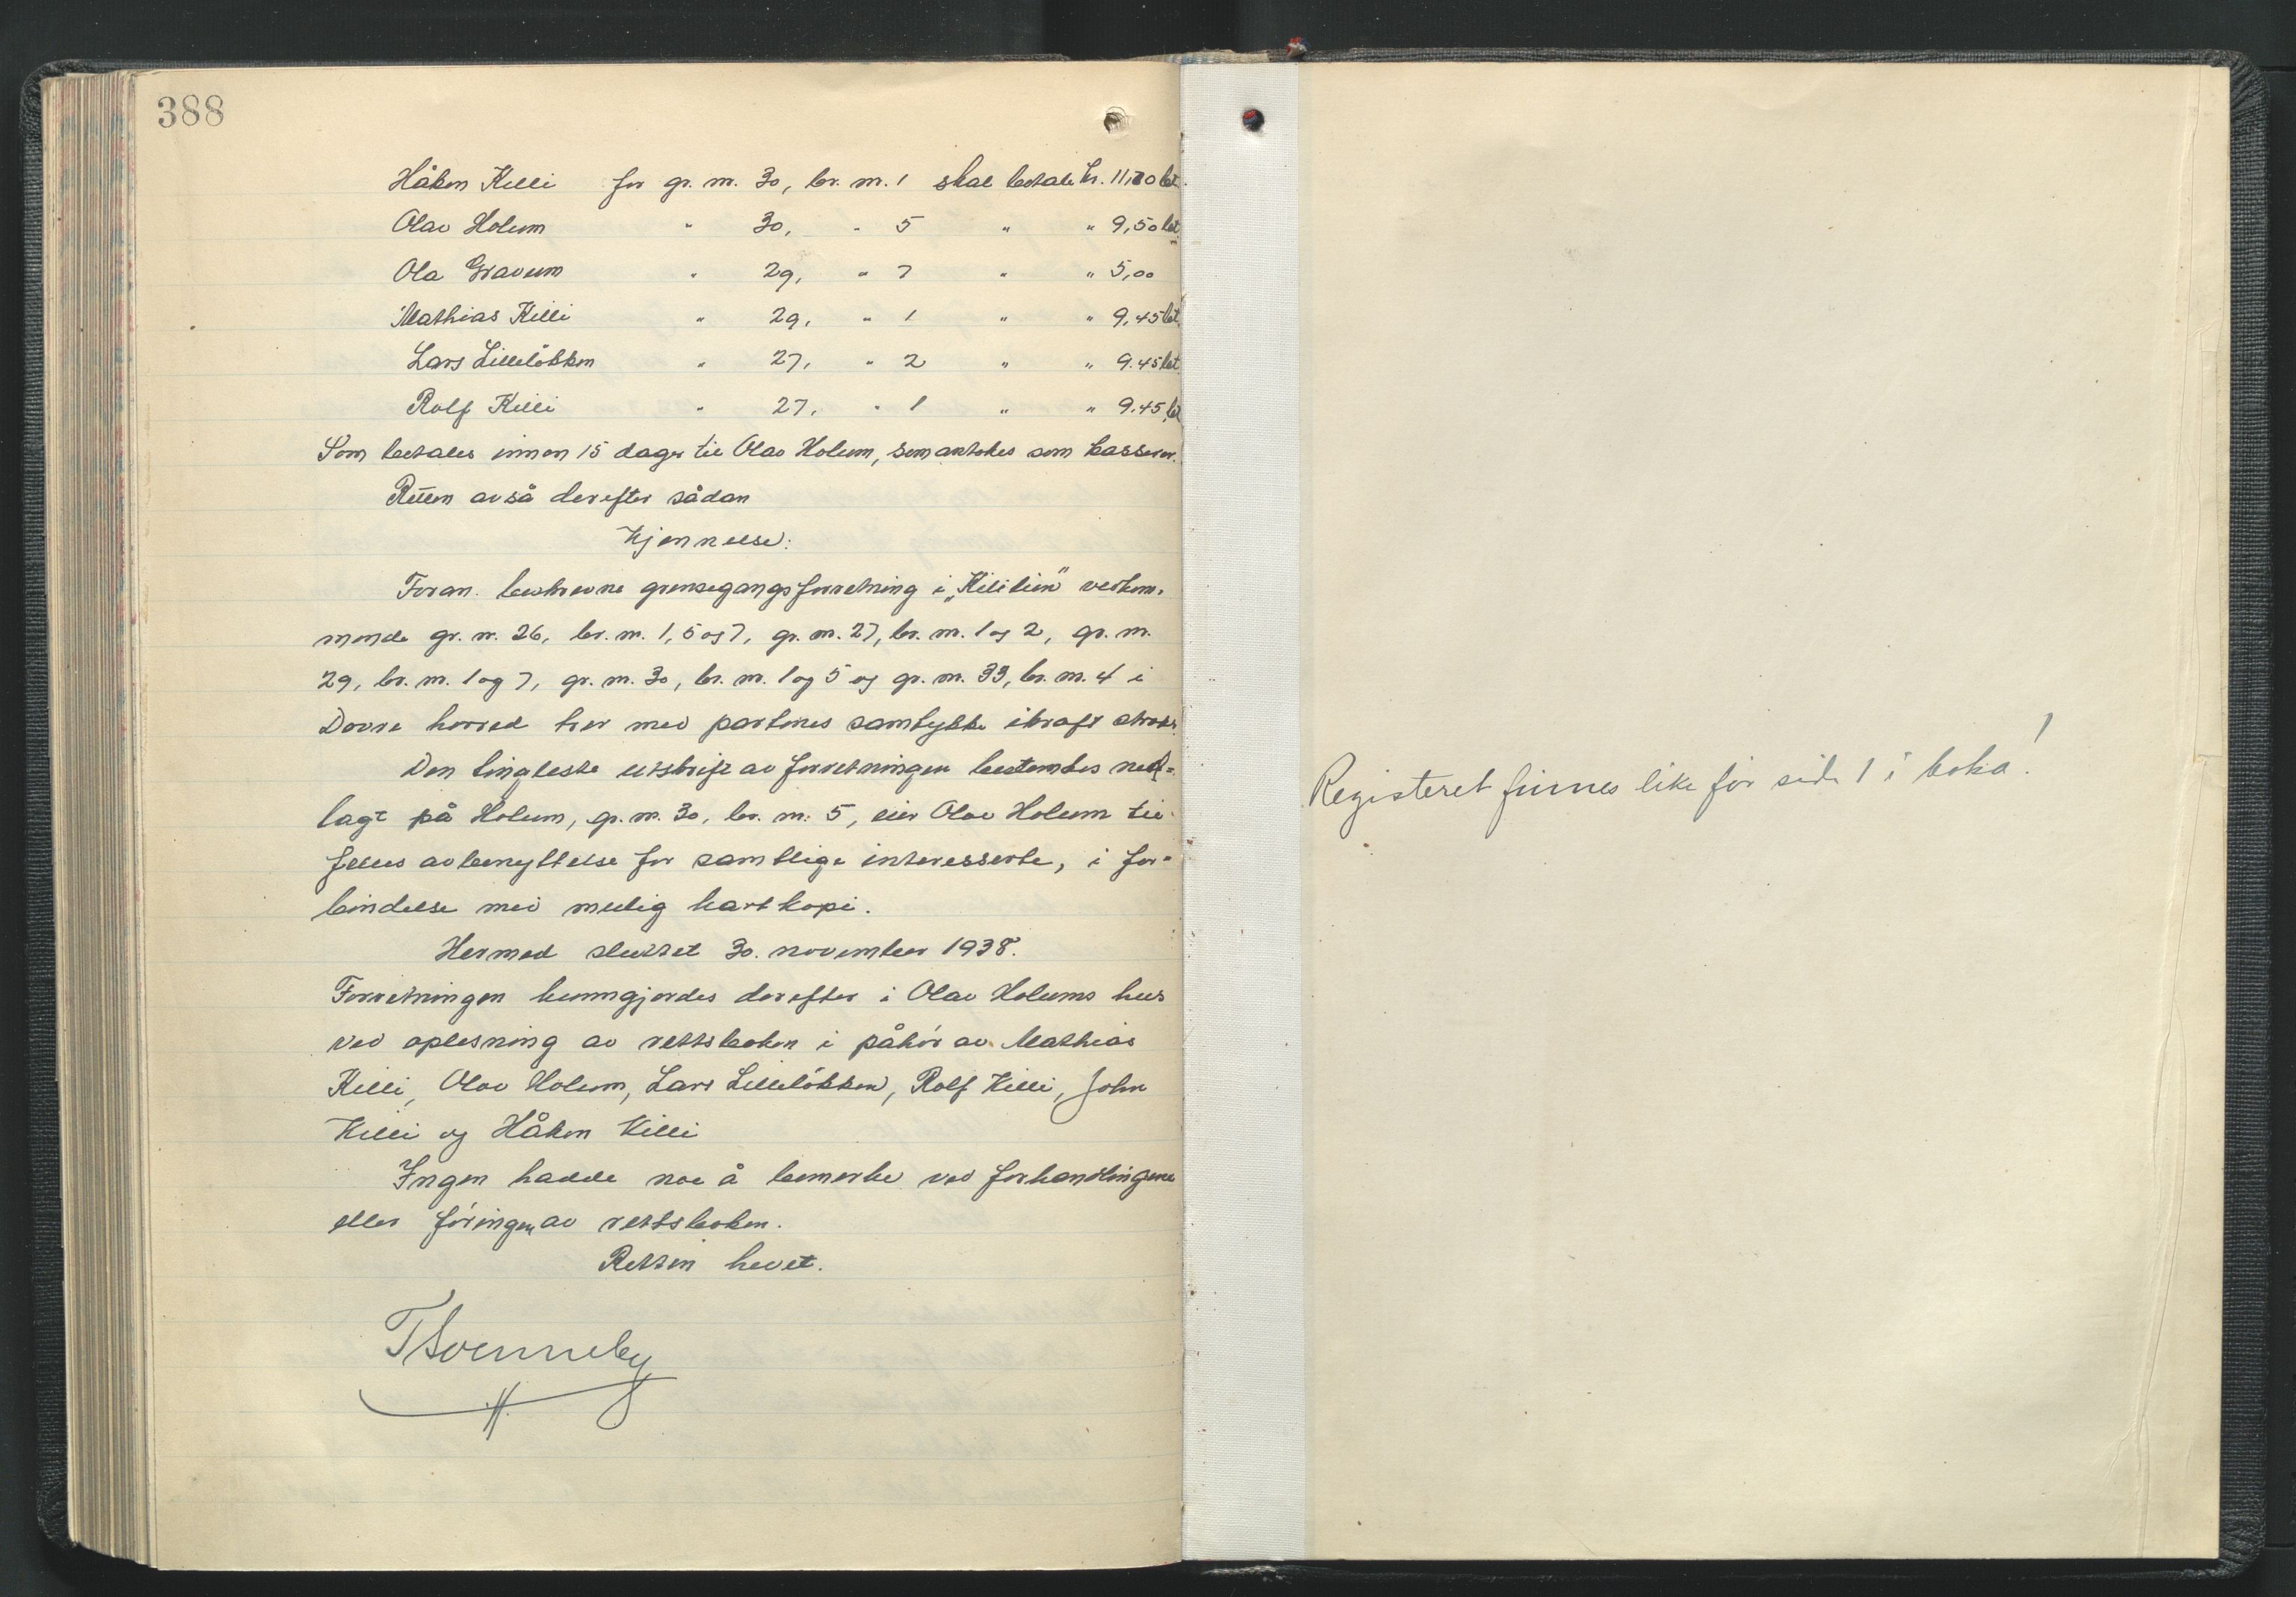 388
Håkon Killi for gr. nr. 30, br. nr. 1 skal betale kr. 11,20 bet.
Olav Holum " 30, " 5 " " 9,50 bet.
Ola Gravum " 29, " 7 " " 5,00
Mathias Killi " 29, " 1 " " 9,45 bet.
Lars Lilleløkken " 27, " 2 " " 9.45 bet.
Rolf Killi " 27, " 1 " " 9.45 bet
Som betales innen 15 dager til Olav Holum, som antokes som kasserer.
Retten avsa derefter sådan
Kjennelse:
Foran beskrevne grensegangsforretning i „Kililien" vedkom-
mende gr. nr. 26, br. nr. 1, 5 og 7, gr. nr. 27, br. nr. 1 og 2, gr. nr.
29, br. nr. 1 og 7, gr. nr. 30, br. nr. 1 og 5 og gr. nr. 33, br. nr. 4 i
Dovre herred trer med partenes samtykke ikraft straks.
Den tingleste utskrift av forretningen bestemtes ned=
lagt på Holum, gr. nr. 30, br. nr. 5, eier Olav Holum til
felles avbenyttelse for samtlige interesserte, i for=
bindelse med mulig kartkopi.
Hermed sluttet 30. november 1938.
Forretningen kunngjordes derefter i Olav Holums hus
ved oplesning av rettsboken i påhør av Mathias
Killi, Olav Holum, Lars Lilleløkken, Rolf Killi, John
Killi og Håkon Killi
Ingen hadde noe å bemerke ved forhandlingene
eller føringen av rettsboken.
Retten hevet.
Registeret finnes like før side 1 i boka!